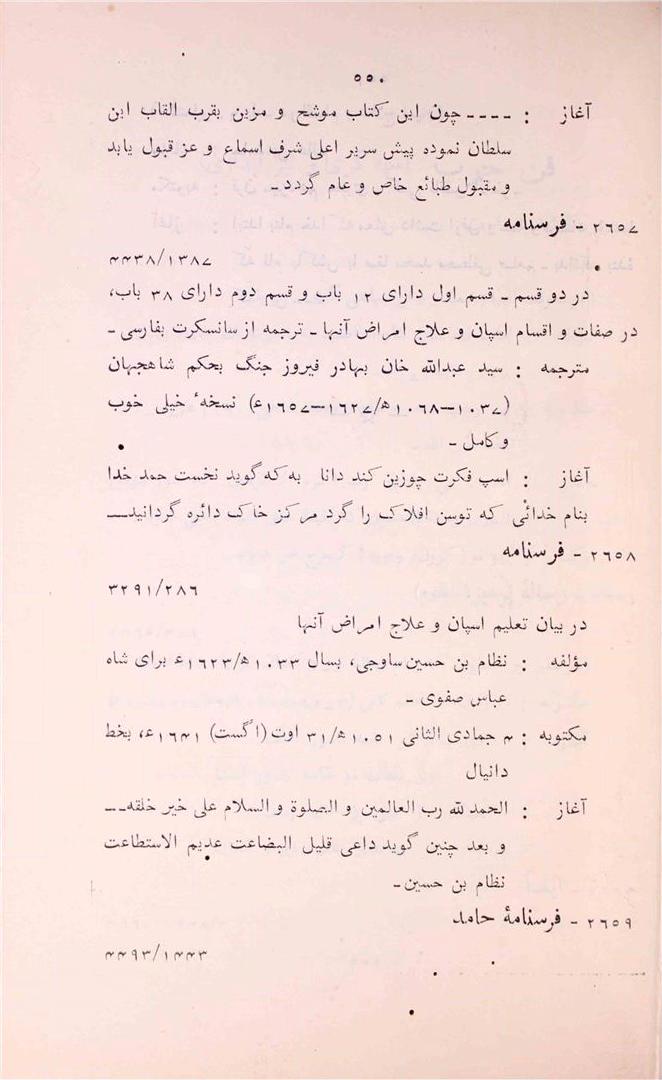 ۵۵۰
آغاز : ــ ــ ــ ــ چون این کتاب موشح و مزین بقرب القاب ابن
سلطان نموده پیش سریر اعلی شرف اسماع و عز قبول یابد
و مقبول طبائع خاص و عام گردد ـ
۲۶۵۷ ـ فرسنامه
۴۴۳۸/۱۳۸۷
در دو قسم ـ قسم اول دارای ۱۲ باب و قسم دوم دارای ۳۸ باب،
در صفات و اقسام اسپان و علاج امراض آنها ـ ترجمه از سانسکرت بفارسی ـ
مترجمه : سید عبدالله خان بهادر فیروز جنگ بحکم شاهجهان
(۱۰۳۷ــ۱۰۶۸ھ/۱۶۲۷ــ۱۶۵۷ع) نسخهٔ خیلی خوب
و کامل ـ
آغاز : اسپ فکرت چوزین کند دانا به که گوید نخست حمد خدا
بنام خدائی که توسن افلاک را گرد مرکز خاک دائره گردانیدــــ
۲۶۵۸ ـ فرسنامه
۳۲۹۱/۲۸۶
در بیان تعلیم اسپان و علاج امراض آنها
مؤلفه : نظام بن حسین ساوجی، بسال ۱۰۳۳ھ/۱۶۲۳ع برای شاه
عباس صفوی ـ
مکتوبه : ۴ جمادی الثانی ۱۰۵۱ھ/۳۱ اوت (اگست) ۱۶۴۱ع، بخط
دانیال
آغاز : الحمد لله رب العالمین و الصلوة و السلام علی خیر خلقه ـ ـ ــ
و بعد چنین گوید داعی قلیل البضاعت عدیم الاستطاعت
نظام بن حسین ـ
۲۶۵۹ ـ فرسنامهٔ حامد
۴۴۹۳/۱۴۴۳